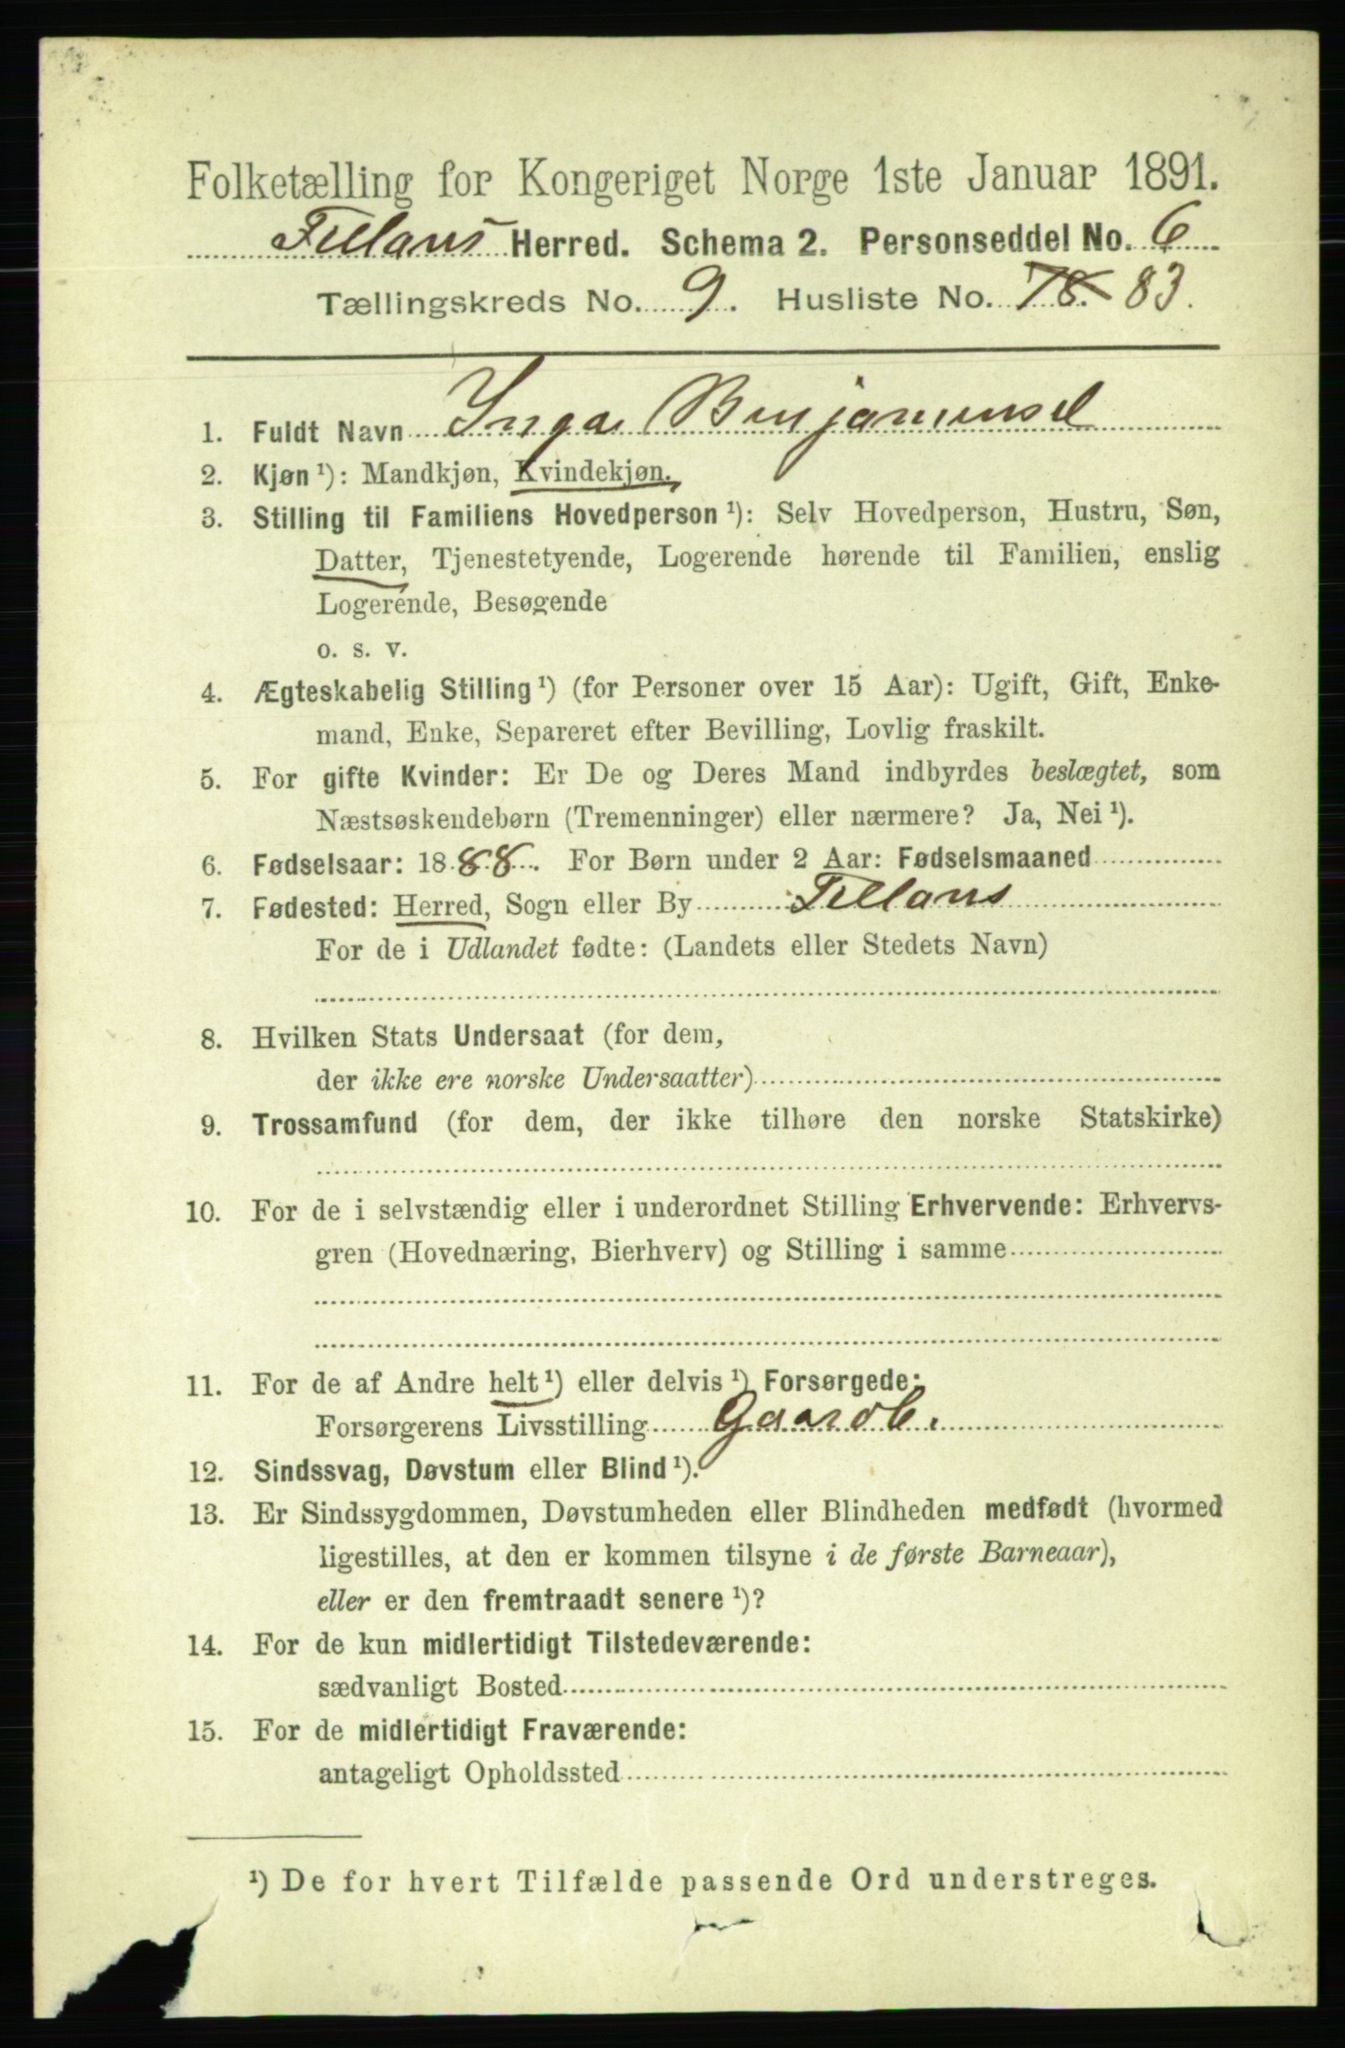 Folketælling for Kongeriget Norge 1ste Januar 1891.
Fillans Herred. Schema 2. Personseddel No. 6
Tællingskreds No. 9. Husliste No. 78. 83.
1. Fuldt Navn Inga Benjaminsd
2. Kjøn ¹): Mandkjøn, Kvindekjøn.
3. Stilling til Familiens Hovedperson ¹): Selv Hovedperson, Hustru, Søn,
Datter, Tjenestetyende, Logerende hørende til Familien, enslig
Logerende, Besøgende
o. s. v.
4. Ægteskabelig Stilling ¹) (for Personer over 15 Aar): Ugift, Gift, Enke-
mand, Enke, Separeret efter Bevilling, Lovlig fraskilt.
5. For gifte Kvinder: Er De og Deres Mand indbyrdes beslægtet, som
Næstsøskendebørn (Tremenninger) eller nærmere? Ja, Nei ¹).
6. Fødselsaar: 1888. For Børn under 2 Aar: Fødselsmaaned
7. Fødested: Herred, Sogn eller By Fillans
For de i Udlandet fødte: (Landets eller Stedets Navn)
8. Hvilken Stats Undersaat (for dem,
der ikke ere norske Undersaatter)
9. Trossamfund (for dem, der ikke tilhøre den norske Statskirke)
10. For de i selvstændig eller i underordnet Stilling Erhvervende: Erhvervs-
gren (Hovednæring, Bierhverv) og Stilling i samme
11. For de af Andre helt ¹) eller delvis ¹) Forsørgede:
Forsørgerens Livsstilling Gaardb.
12. Sindssvag, Døvstum eller Blind ¹).
13. Er Sindssygdommen, Døvstumheden eller Blindheden medfødt (hvormed
ligestilles, at den er kommen tilsyne i de første Barneaar),
eller er den fremtraadt senere ¹)?
14. For de kun midlertidigt Tilstedeværende:
sædvanligt Bosted
15. For de midlertidigt Fraværende:
antageligt Opholdssted
¹) De for hvert Tilfælde passende Ord understreges.